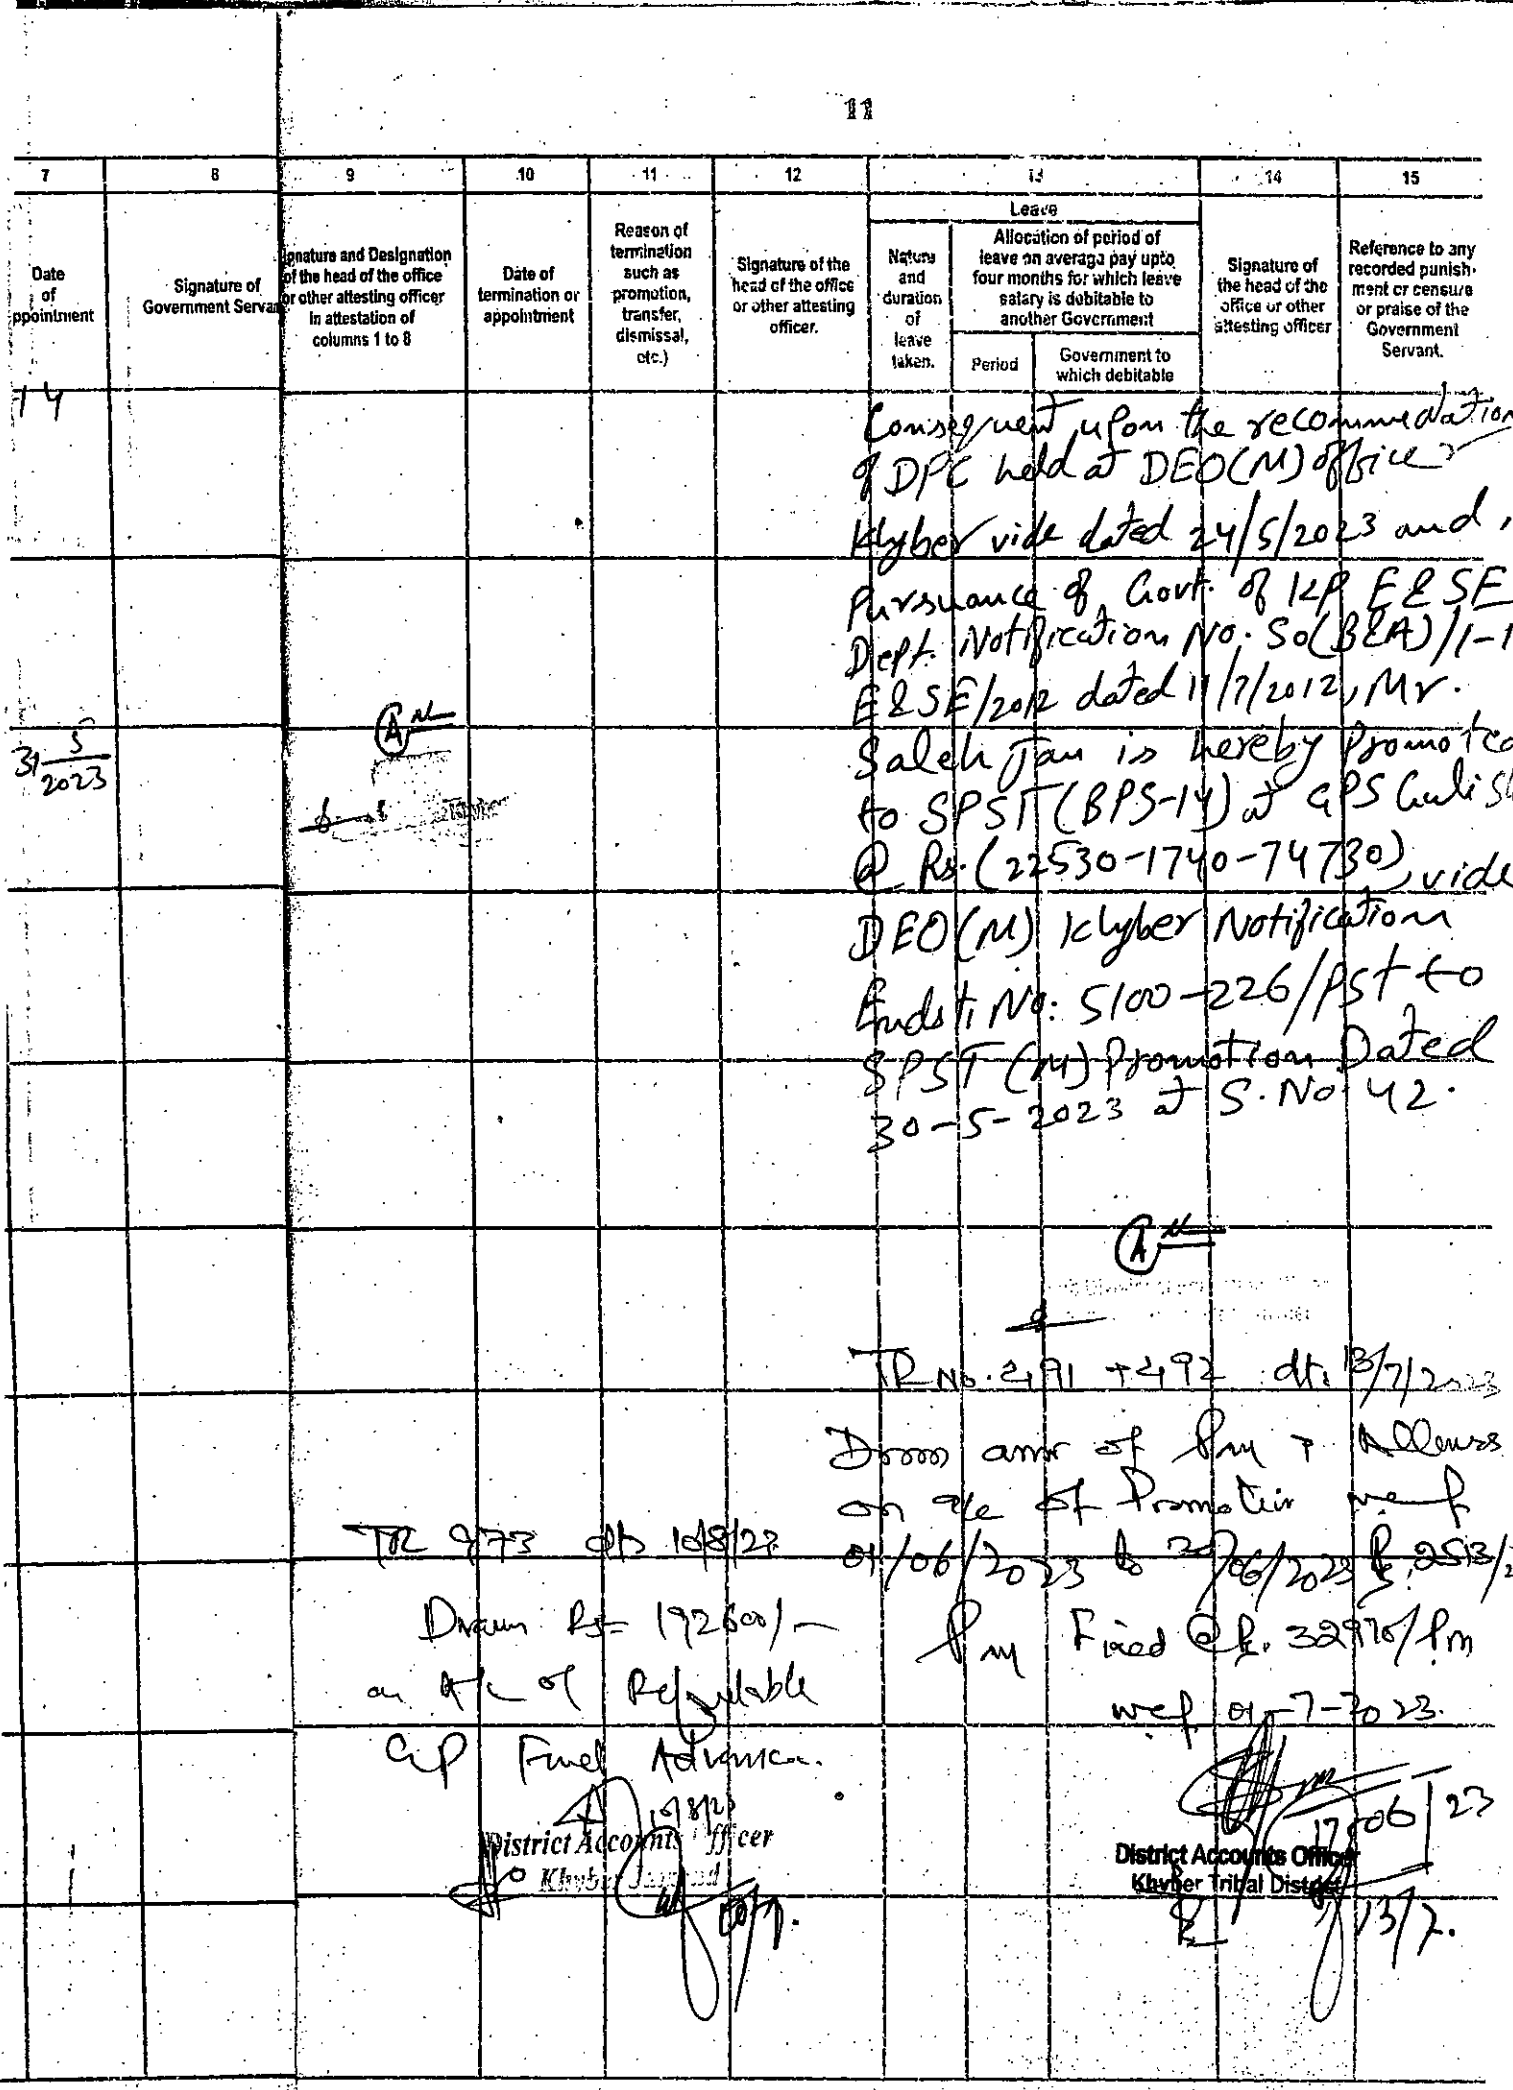 11
7 8 9 10 11 12 13 14 15
Date
of
ppointment
Signature of
Government Servan
ignature and Designation
of the head of the office
or other attesting officer
in attestation of
columns 1 to 8
Date of
termination or
appointment
Reason of
termination
such as
promotion,
transfer,
dismissal,
etc.)
Signature of the
head of the office
or other attesting
officer.
Leave
Nature
and
duration
of
leave
taken.
Allocation of period of
leave on average pay upto
four months for which leave
salary is debitable to
another Government
Period
Government to
which debitable
Signature of
the head of the
office or other
attesting officer
Reference to any
recorded punish-
ment or censure
or praise of the
Government
Servant.
14
Consequent upon the recommedation
of DPC held at DEO(M) office
Khyber vide dated 24/5/2023 and,
Pursuance of Govt. of KP E&SE
Dept. Notification No. So(B&A)/1-1
E&SE/2012 dated 11/7/2012, Mr.
Saleh Jan is hereby Promoted
to SPST (BPS-14) at GPS Guli Sh
@ Rs. (22530-1740-74730), vide
DEO(M) Khyber Notification
Endst; No: 5100-226/PST to
SPST (M) Promotion Dated
30-5-2023 at S.No. 42.
31 5
2023
TR No. 2491 + 2492 dt. 13/7/2023
Drawn arrr of Pay & Allowes
on a/c of Promotion wef
01/06/2023 to 30/06/2023 Rs. 2513/
Pay Fixed @ Rs. 32970/Pm
wef 01-7-2023.
17/06/23
District Accounts Officer
Khyber Tribal District
13/7.
TR 973 dt 10/8/23
Drawn Rs= 192600/-
on A/c of Refundable
GP Fund Advance.
10/8/23
District Accounts Officer
Khyber Jamrud